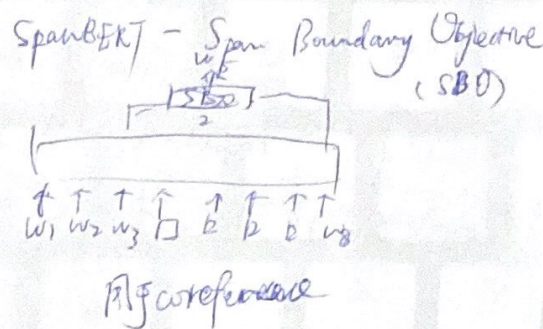 SpanBERT - Span Boundary Objective
(SBO)
w5
SBO
2
w1 w2 w3 □ □ □ □ w8
用于coreference